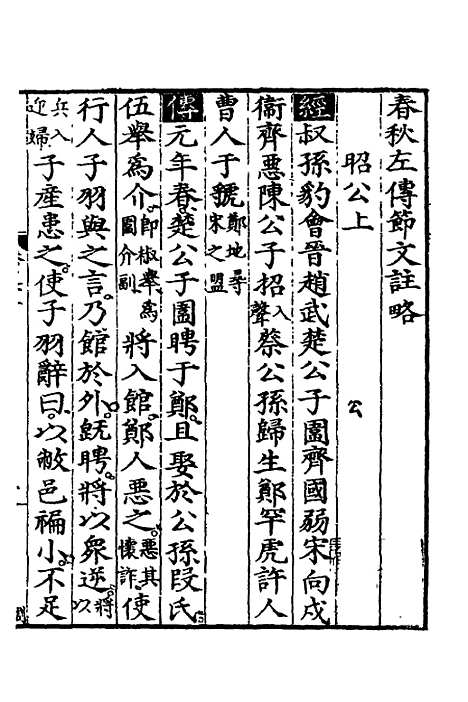 春秋左傳節文註略
昭公上
經叔孫豹會晉趙武楚公子圍齊國弱宋向戌
衞齊惡陳公子招入聲蔡公孫歸生鄭罕虎許人
曹人于虢鄭地尋宋之盟
傳元年春楚公子圍聘于鄭且娶於公孫段氏
伍舉爲介即椒舉爲圍介副將入館鄭人惡之惡其懷詐使
行人子羽與之言乃館於外旣聘將以衆逆將以
兵入迎婦子產患之使子羽辭曰以敝邑褊小不足